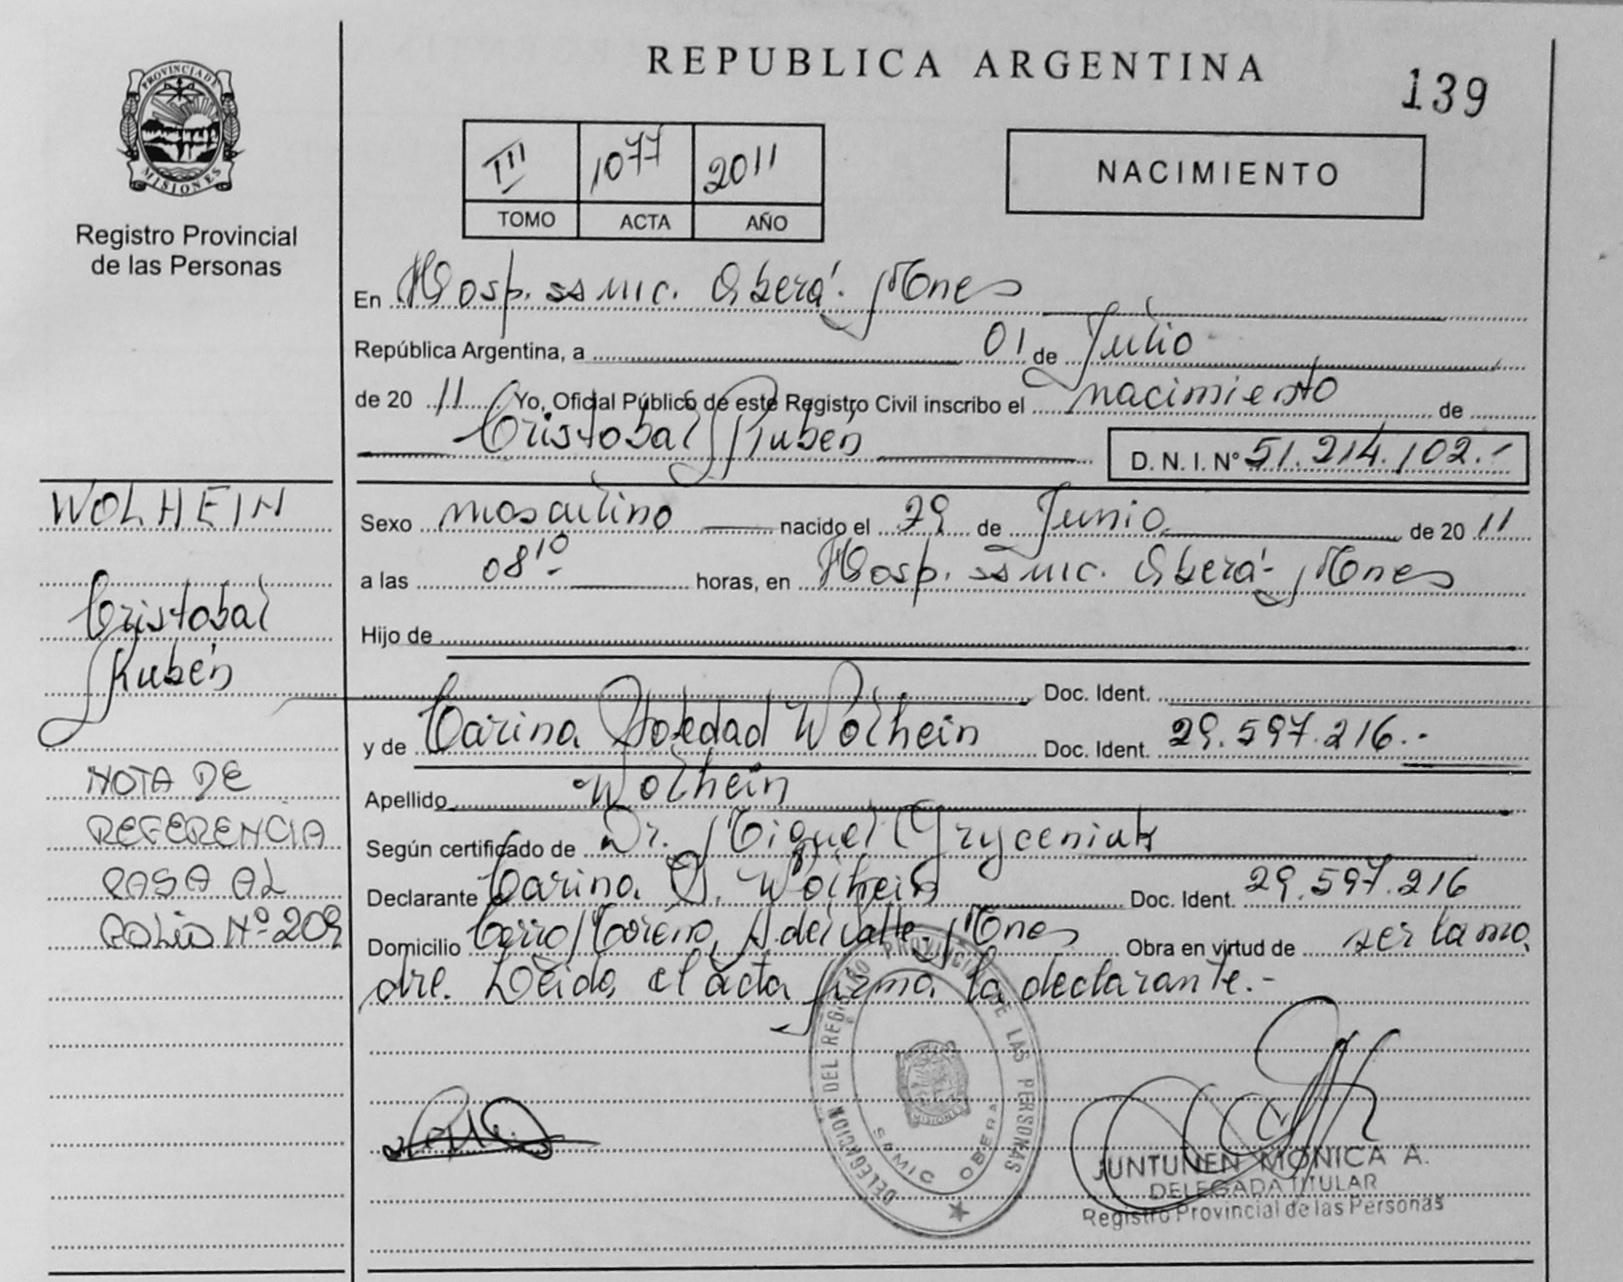 REPUBLICA ARGENTINA
139
PROVINCIA DE
MISIONES
Registro Provincial
de las Personas
III 1077 2011
TOMO ACTA AÑO
NACIMIENTO
En Hosp. SSMIC. Oberá. Mnes
República Argentina, a 01 de Julio
de 20 11 Yo, Oficial Público de este Registro Civil inscribo el nacimiento de
Cristobal Rubén D. N. I. Nº 51.214.102.-
WOLHEIN
Cristobal
Rubén
NOTA DE
REFERENCIA
PASA AL
FOLIO Nº 209
Sexo masculino nacido el 29 de Junio de 20 11
a las 08¹⁰- horas, en Hosp. SSMIC. Oberá- Mnes
Hijo de
Doc. Ident.
y de Carina Soledad Wolhein Doc. Ident. 29.597.216.-
Apellido Wolhein
Según certificado de Dr. Miguel Gryceniuk
Declarante Carina S. Wolhein Doc. Ident. 29.597.216
Domicilio Cerro Moreno, A. del Valle. Mnes Obra en virtud de ser la ma
dre. Leída el acta firma la declarante.-
DELEGACION DEL REGISTRO PROVINCIAL DE LAS PERSONAS
SAMIC OBERA
MISIONES
JUNTUNEN MONICA A.
DELEGADA TITULAR
Registro Provincial de las Personas